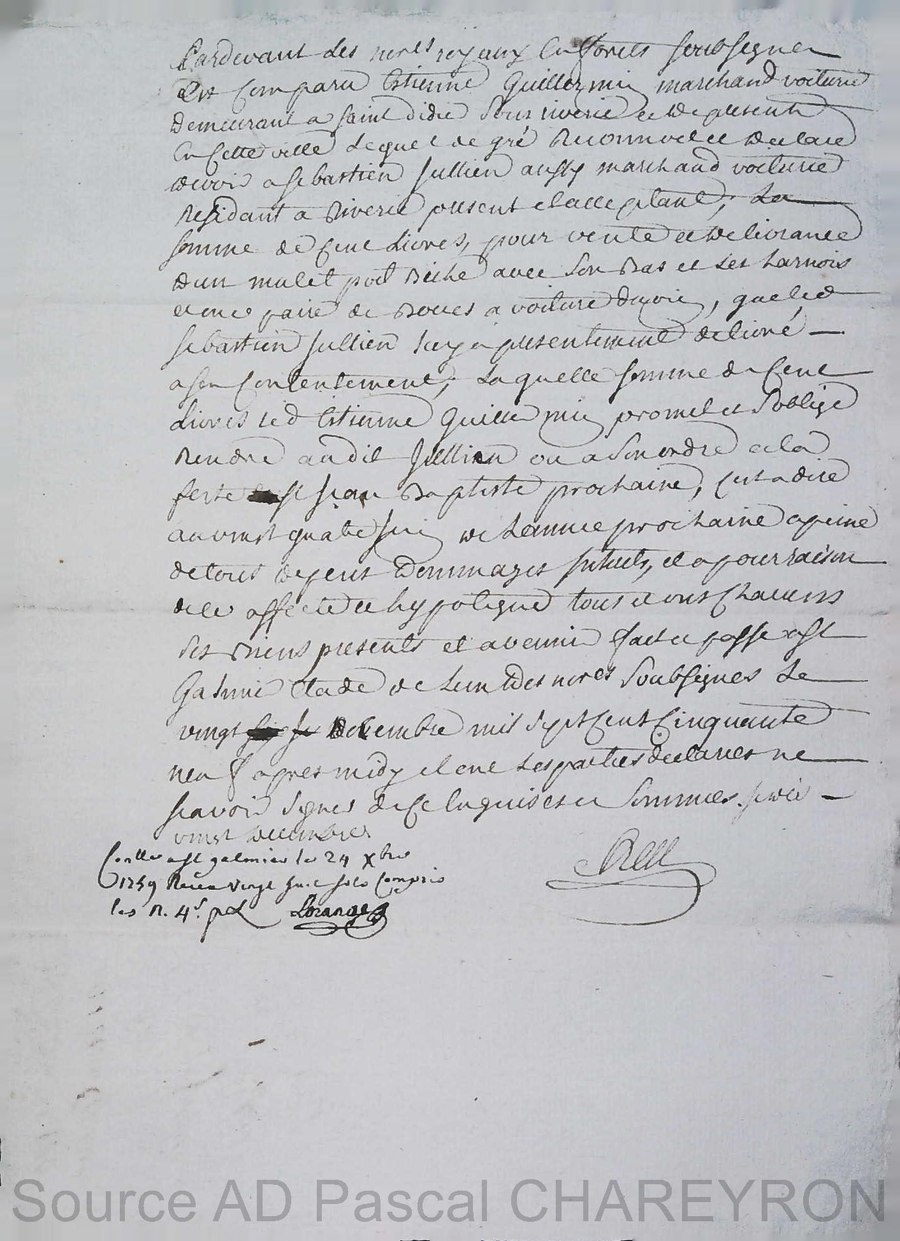 Pardevant Les no[tai]res royaux En forets soubsignes
Est Comparu Estienne Guillermin marchand voiturie
Demeurant a saint didie sous riverie et De present
En Cette ville Lequel de gré Reconnoit et declare
devoir a sebastien Jullien aussy marchand voiturie
Residant a Riverie present et acceptant, La
somme de Cent Livres, pour vente et Delivrance
dun mulet poil avec Son Bas et Ses harnois
et une paire de a voiture du vin, que led
sebastien Jullien luy a presentement delivré
a son Contentement, Laquelle somme de Cent
Livres led Estienne Guillermin promet et soblige
Rendre audit Jullien ou a Son ordre a la
feste st Jean Baptiste prochaine, Cest a dire
au vingt quatre Juin de Lannee prochaine a peine
de tous depens Dommages Interets, et a pour raison
de ce affecté et hypotequé tous et uns Chacuns
Ses Biens presents et avenir fait et passé a st
Galmie Etude de Lun Des no[tai]res Soubsignes Le
vingt Decembre mil sept Cent Cinquante
neuf apres midy et ont Les parties declarees ne
scavoir Signer de Ce Enquises et Sommees
vingt decembre
Conllé a st galmier le 24 xbre
1759 Receu vingt huit sols Compris
les